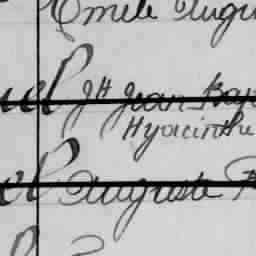 Emile Augu
uel Jh Jean Bap
Hyacinthe
el Auguste